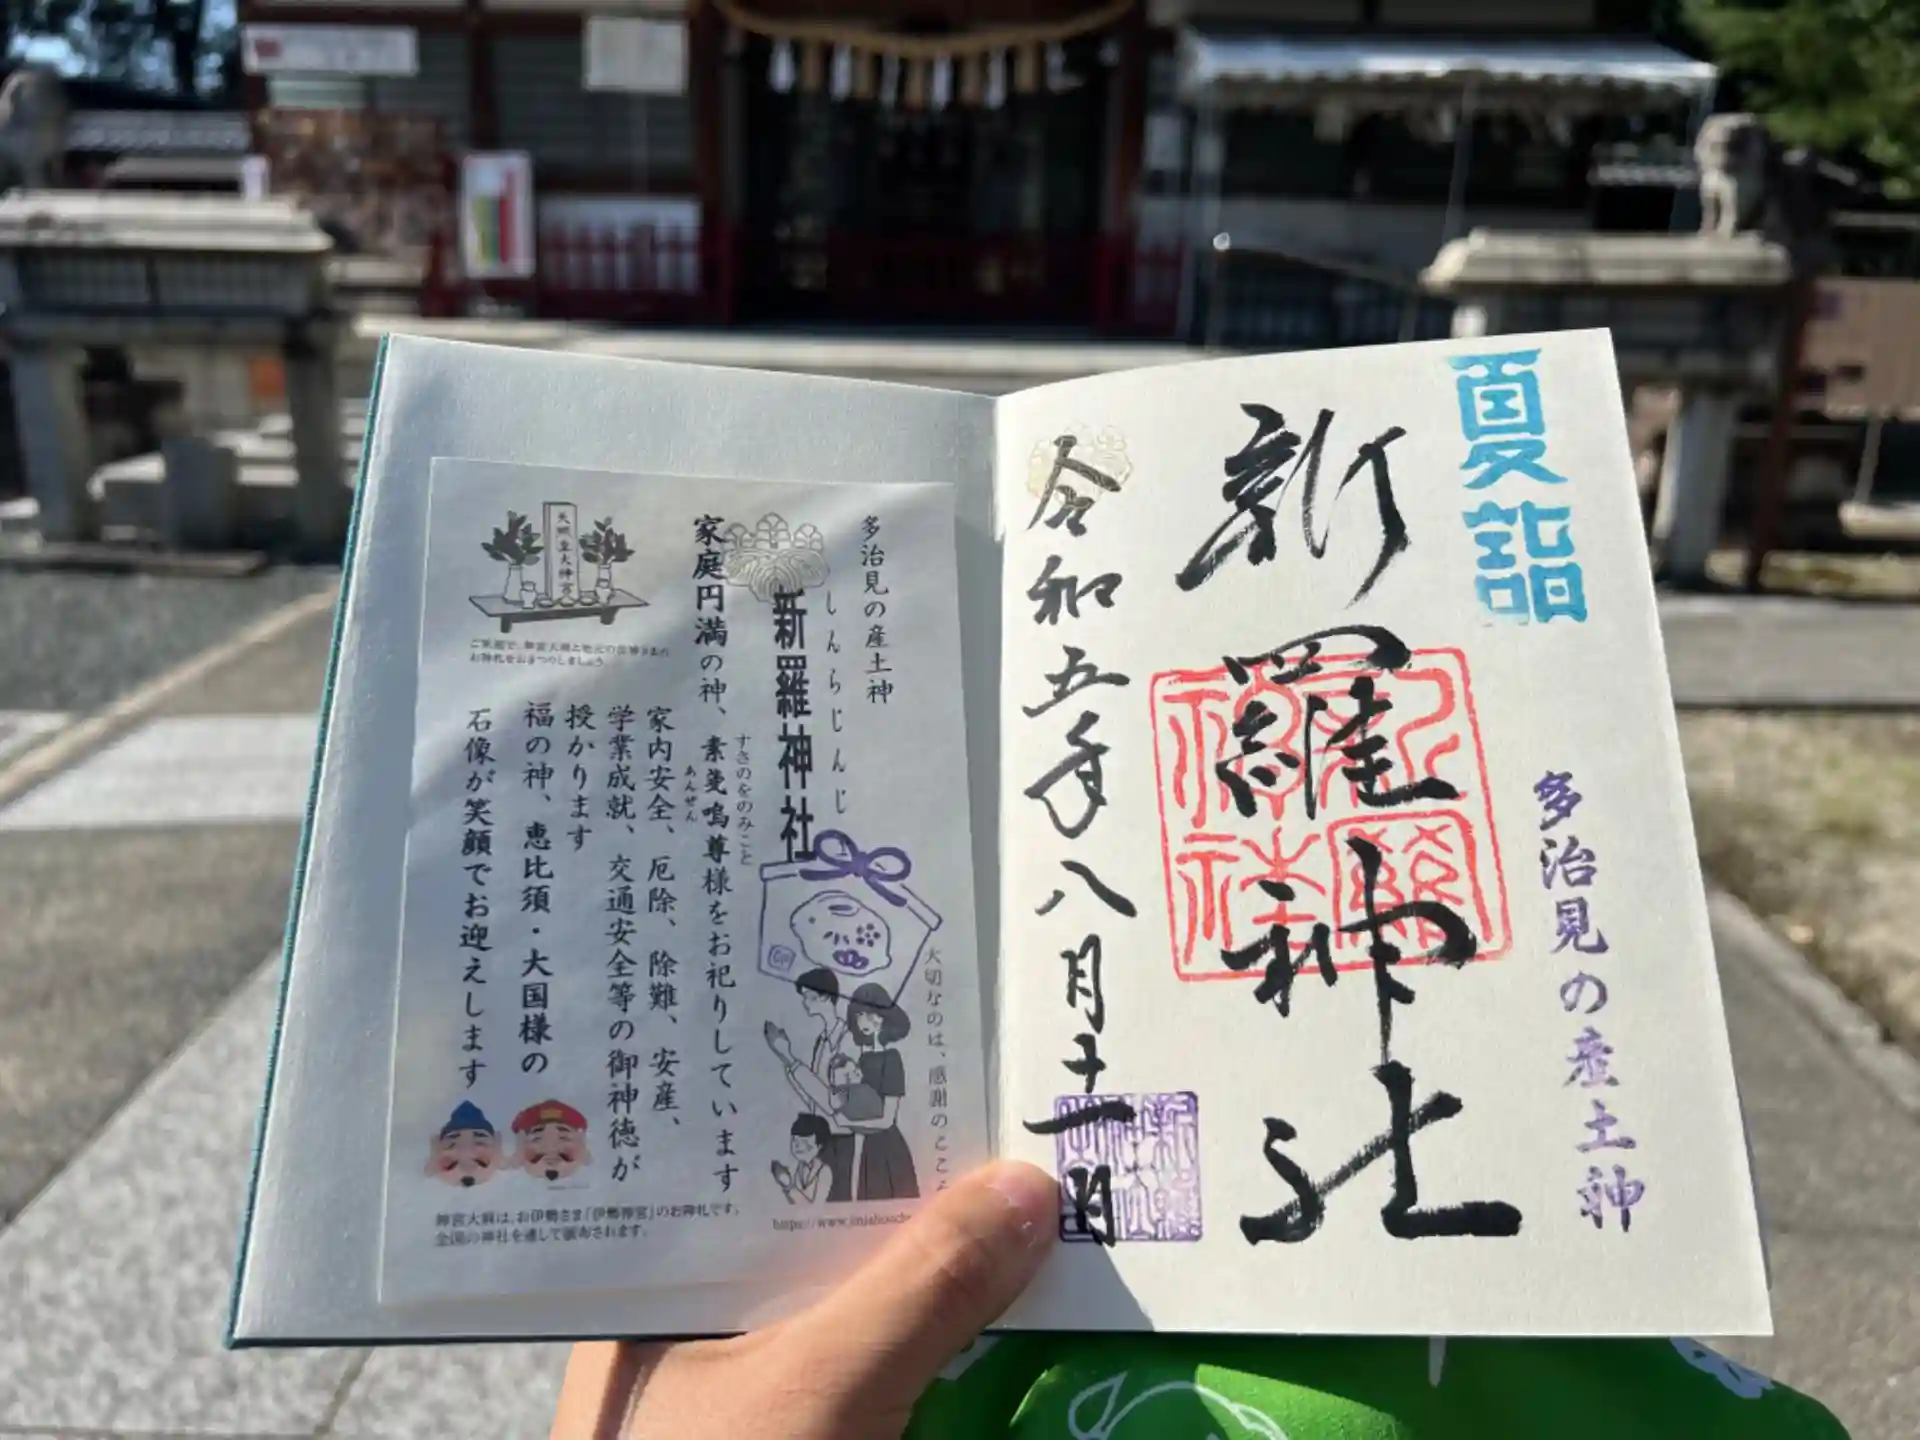 夏詣
多治見の産土神
新羅神社
令和五年八月十一日
多治見の産土神
しんらじんじゃ
新羅神社
すさのをのみこと
家庭円満の神、素戔嗚尊様をお祀りしています
家内安全、厄除、除難、安産、
あんざん
学業成就、交通安全等の御神徳が
授かります
福の神、恵比須・大国様の
石像が笑顔でお迎えします
大切なのは、感謝のこころ
天照皇大神宮
お神札をおまつりしましょう
神宮大麻は、お伊勢さま「伊勢神宮」のお神札です。
全国の神社を通して頒布されます。